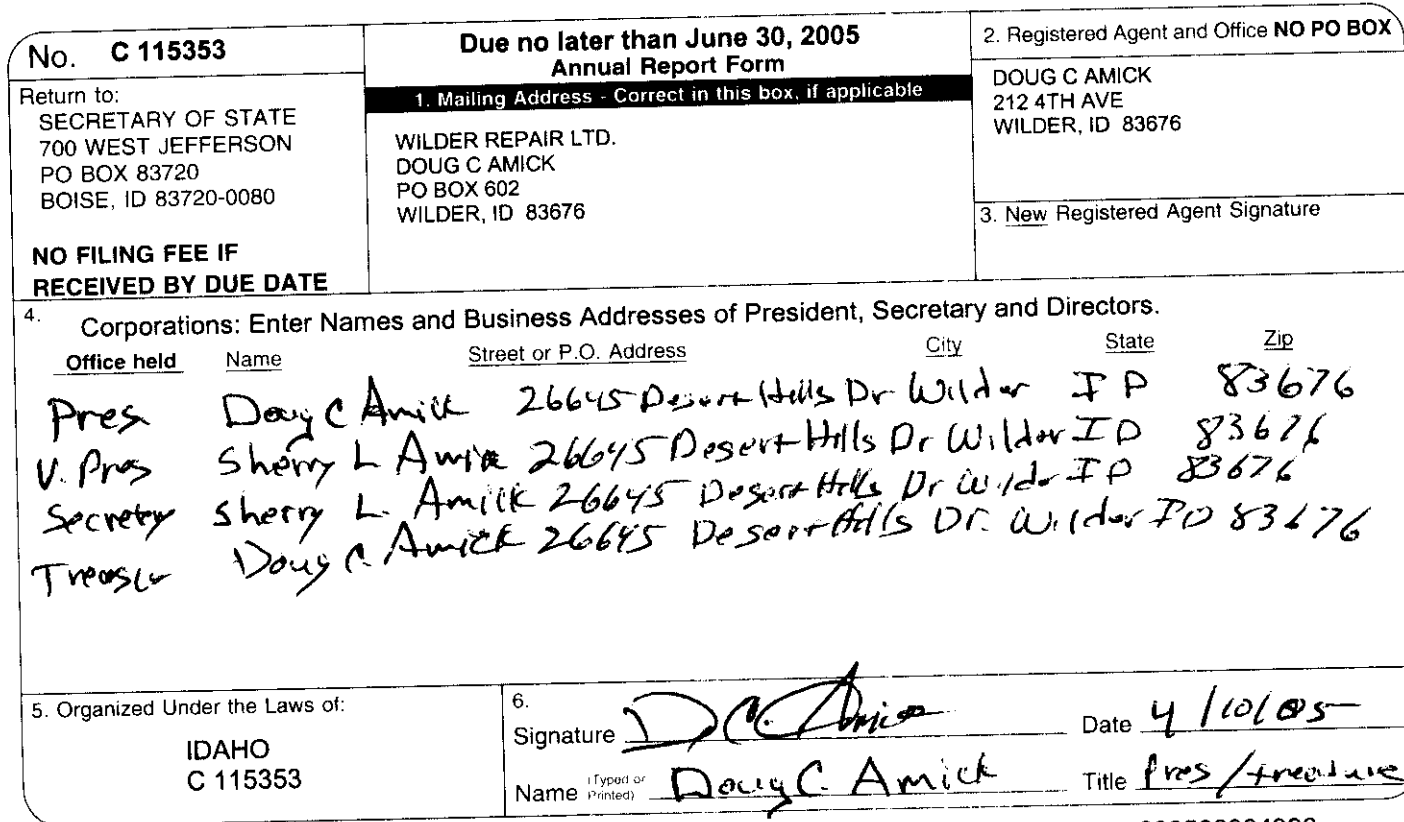 No. C 115353
Return to:
SECRETARY OF STATE
700 WEST JEFFERSON
PO BOX 83720
BOISE, ID 83720-0080
NO FILING FEE IF
RECEIVED BY DUE DATE
Due no later than June 30, 2005
Annual Report Form
1. Mailing Address - Correct in this box, if applicable
WILDER REPAIR LTD.
DOUG C AMICK
PO BOX 602
WILDER, ID 83676
2. Registered Agent and Office NO PO BOX
DOUG C AMICK
212 4TH AVE
WILDER, ID 83676
3. New Registered Agent Signature
4. Corporations: Enter Names and Business Addresses of President, Secretary and Directors.
Office held Name Street or P.O. Address City State Zip
Pres Doug C Amick 26645 Desert Hills Dr Wilder ID 83676
V. Pres Sherry L Amick 26645 Desert Hills Dr Wilder ID 83676
Secretey Sherry L. Amick 26645 Desert Hills Dr Wilder ID 83676
Doug C. Amick 26645 Desert Hills Dr. Wilder ID 83676
5. Organized Under the Laws of:
IDAHO
C 115353
6.
Signature D C. Amick Date 4/10/05
Name (Typed or Printed) Doug C. Amick Title Pres / treasure